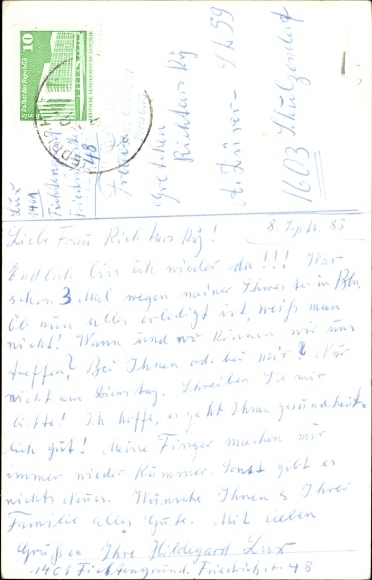 10
Lux
1401
Fichtengrund
Friedrichstr.
48
Frau
Gretchen
Richtarsky
A. Dürer- Str 59
1603 Schulzendorf
8. Sept. 83
Liebe Frau Richtarsky!
Endlich bin ich wieder da!!! War
schon 3 Mal wegen meiner Schwester in Bln,
Ob nun alles erledigt ist, weiß man
nicht! Wann und wo können wir uns
treffen? Bei Ihnen od. bei mir? Nur
nicht am Dienstag. Schreiben Sie mir
bitte! Ich hoffe, es geht Ihnen gesundheit-
lich gut! Meine Finger machen mir
immer wieder Kummer. Sonst gibt es
nichts Neues. Wünsche Ihnen & Ihrer
Familie alles Gute. Mit lieben
Grüßen Ihre Hildegard Lux
1401 Fichtengrund, Friedrichstr. 48